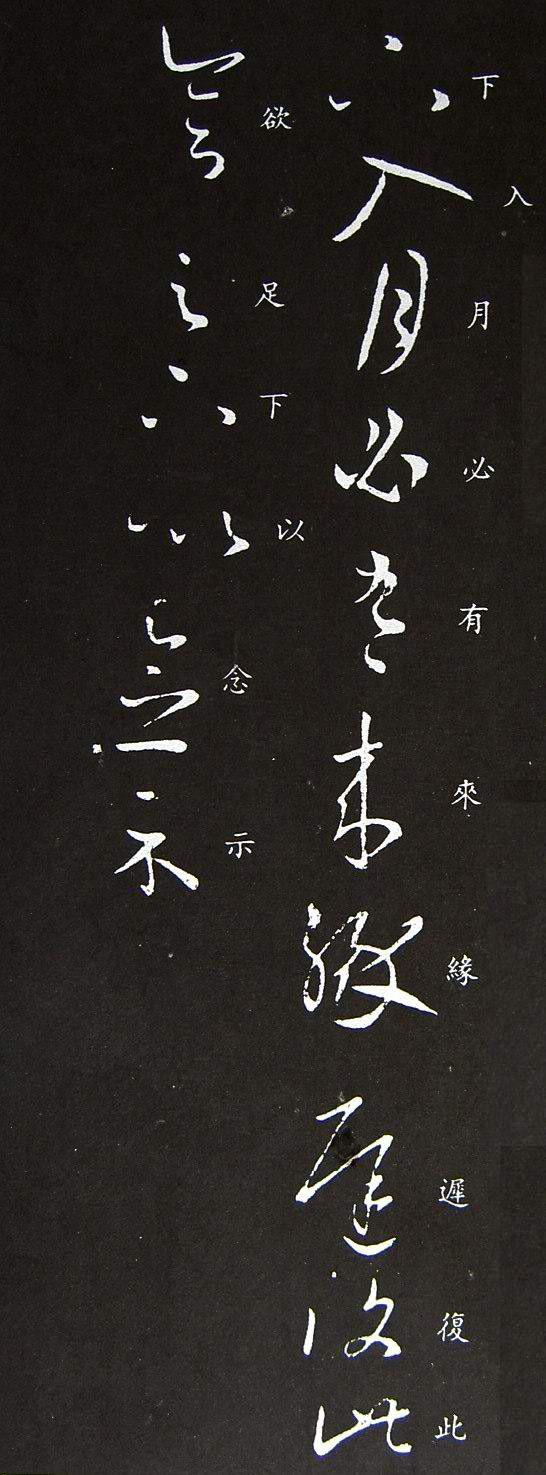 下入月必有來緣遲復此
欲足下以念示